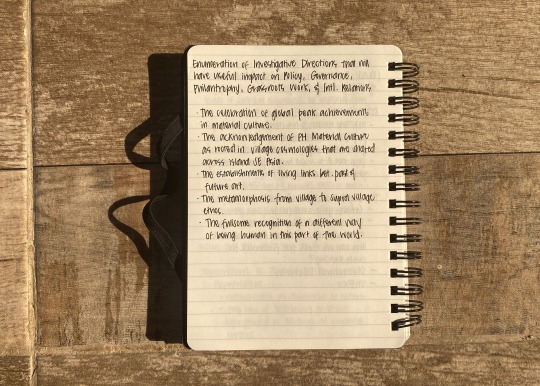 Enumeration of Investigative Directions that will
have useful impact on Policy, Governance,
Philanthropy, Grassroots Work, & Intl. Relations
· The celebration of global peak achievements
in material culture.
· The acknowledgement of PH Material Culture
as rooted in village cosmologies that are shared
across island SE Asia.
· The establishments of living links bet. past &
future art.
· The metamorphosis from village to supra village
ethos.
· The fulsome recognition of a different way
of being human in this part of the world.